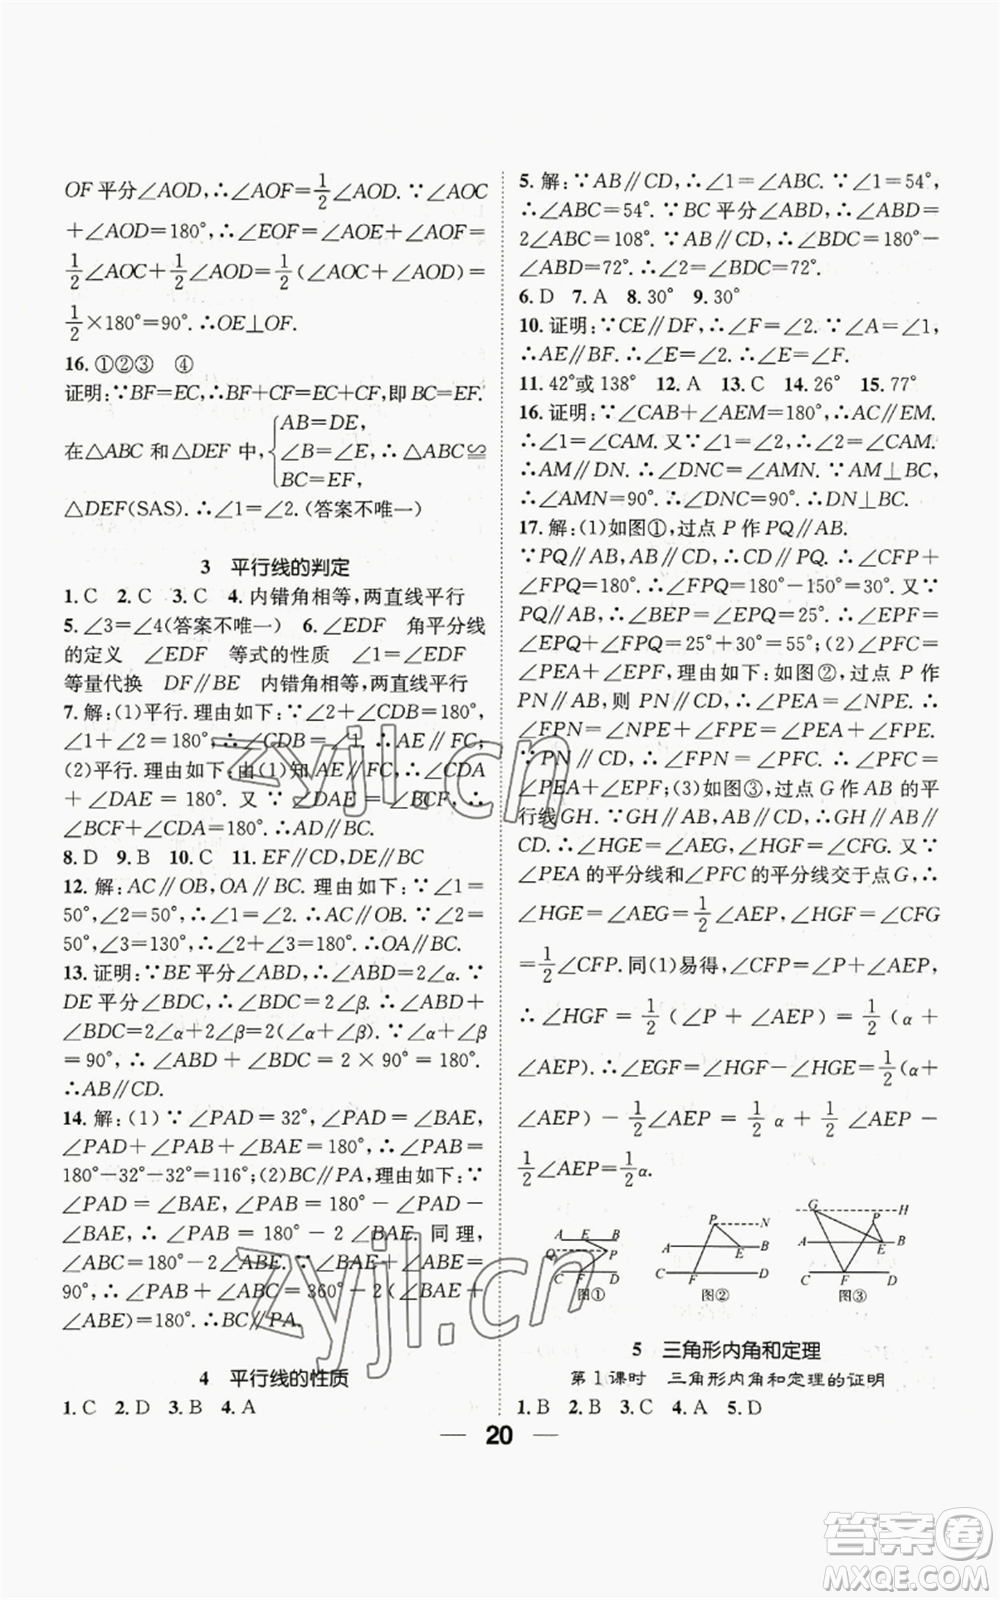 OF平分∠AOD,∴∠AOF=1/2∠AOD.∵∠AOC
+∠AOD=180°,∴∠EOF=∠AOE+∠AOF=
1/2∠AOC+1/2∠AOD=1/2(∠AOC+∠AOD)=
1/2×180°=90°.∴OE⊥OF.
16.①②③ ④
证明:∵BF=EC,∴BF+CF=EC+CF,即BC=EF.
AB=DE,
在△ABC和△DEF中,{∠B=∠E,∴△ABC≌
BC=EF,
△DEF(SAS).∴∠1=∠2.(答案不唯一)
3 平行线的判定
1.C 2.C 3.C 4.内错角相等,两直线平行
5.∠3=∠4(答案不唯一) 6.∠EDF 角平分线
的定义 ∠EDF 等式的性质 ∠1=∠EDF
等量代换 DF∥BE 内错角相等,两直线平行
7.解:(1)平行.理由如下:∵∠2+∠CDB=180°,
∠1+∠2=180°,∴∠CDB=∠1.∴AE∥FC;
(2)平行.理由如下:由(1)知AE∥FC,∴∠CDA
+∠DAE=180°.又∵∠DAE=∠BCF,∴
∠BCF+∠CDA=180°.∴AD∥BC.
8.D 9.B 10.C 11.EF∥CD,DE∥BC
12.解:AC∥OB,OA∥BC.理由如下:∵∠1=
50°,∠2=50°,∴∠1=∠2.∴AC∥OB.∵∠2=
50°,∠3=130°,∴∠2+∠3=180°.∴OA∥BC.
13.证明:∵BE平分∠ABD,∴∠ABD=2∠α.∵
DE平分∠BDC,∴∠BDC=2∠β.∴∠ABD+
∠BDC=2∠α+2∠β=2(∠α+∠β).∵∠α+∠β
=90°,∴∠ABD+∠BDC=2×90°=180°.
∴AB∥CD.
14.解:(1)∵∠PAD=32°,∠PAD=∠BAE,
∠PAD+∠PAB+∠BAE=180°,∴∠PAB=
180°-32°-32°=116°;(2)BC∥PA,理由如下:∵
∠PAD=∠BAE,∠PAB=180°-∠PAD-
∠BAE,∴∠PAB=180°-2∠BAE.同理,
∠ABC=180°-2∠ABE.∵∠BAE+∠ABE=
90°,∴∠PAB+∠ABC=360°-2(∠BAE+
∠ABE)=180°.∴BC∥PA.
4 平行线的性质
1.C 2.D 3.B 4.A
5.解:∵AB∥CD,∴∠1=∠ABC.∵∠1=54°,
∴∠ABC=54°.∵BC平分∠ABD,∴∠ABD=
2∠ABC=108°.∵AB∥CD,∴∠BDC=180°-
∠ABD=72°.∴∠2=∠BDC=72°.
6.D 7.A 8.30° 9.30°
10.证明:∵CE∥DF,∴∠F=∠2.∵∠A=∠1,
∴AE∥BF.∴∠E=∠2.∴∠E=∠F.
11.42°或138° 12.A 13.C 14.26° 15.77°
16.证明:∵∠CAB+∠AEM=180°,∴AC∥EM.
∴∠1=∠CAM.又∵∠1=∠2,∴∠2=∠CAM.
∴AM∥DN.∴∠DNC=∠AMN.∵AM⊥BC,
∴∠AMN=90°.∴∠DNC=90°.∴DN⊥BC.
17.解:(1)如图①,过点P作PQ∥AB.
∵PQ∥AB,AB∥CD,∴CD∥PQ.∴∠CFP+
∠FPQ=180°.∴∠FPQ=180°-150°=30°.又∵
PQ∥AB,∴∠BEP=∠EPQ=25°.∴∠EPF=
∠EPQ+∠FPQ=25°+30°=55°;(2)∠PFC=
∠PEA+∠EPF,理由如下:如图②,过点P作
PN∥AB,则PN∥CD,∴∠PEA=∠NPE.∴
∠FPN=∠NPE+∠FPE=∠PEA+∠FPE.
∵PN∥CD,∴∠FPN=∠PFC.∴∠PFC=
∠PEA+∠EPF;(3)如图③,过点G作AB的平
行线GH.∵GH∥AB,AB∥CD,∴GH∥AB∥
CD.∴∠HGE=∠AEG,∠HGF=∠CFG.又∵
∠PEA的平分线和∠PFC的平分线交于点G,∴
∠HGE=∠AEG=1/2∠AEP,∠HGF=∠CFG
=1/2∠CFP.同(1)易得,∠CFP=∠P+∠AEP,
∴∠HGF=1/2(∠P+∠AEP)=1/2(α+
∠AEP).∴∠EGF=∠HGF-∠HGE=1/2(α+
∠AEP)-1/2∠AEP=1/2α+1/2∠AEP-
1/2∠AEP=1/2α.
A E B
Q P
C F D
图①
P N
A E B
C F D
图②
G H
P
A E B
C F D
图③
5 三角形内角和定理
第1课时 三角形内角和定理的证明
1.B 2.B 3.C 4.A 5.D
20
zyjl.cn
zyjl.cn
答案卷
MXQE.COM